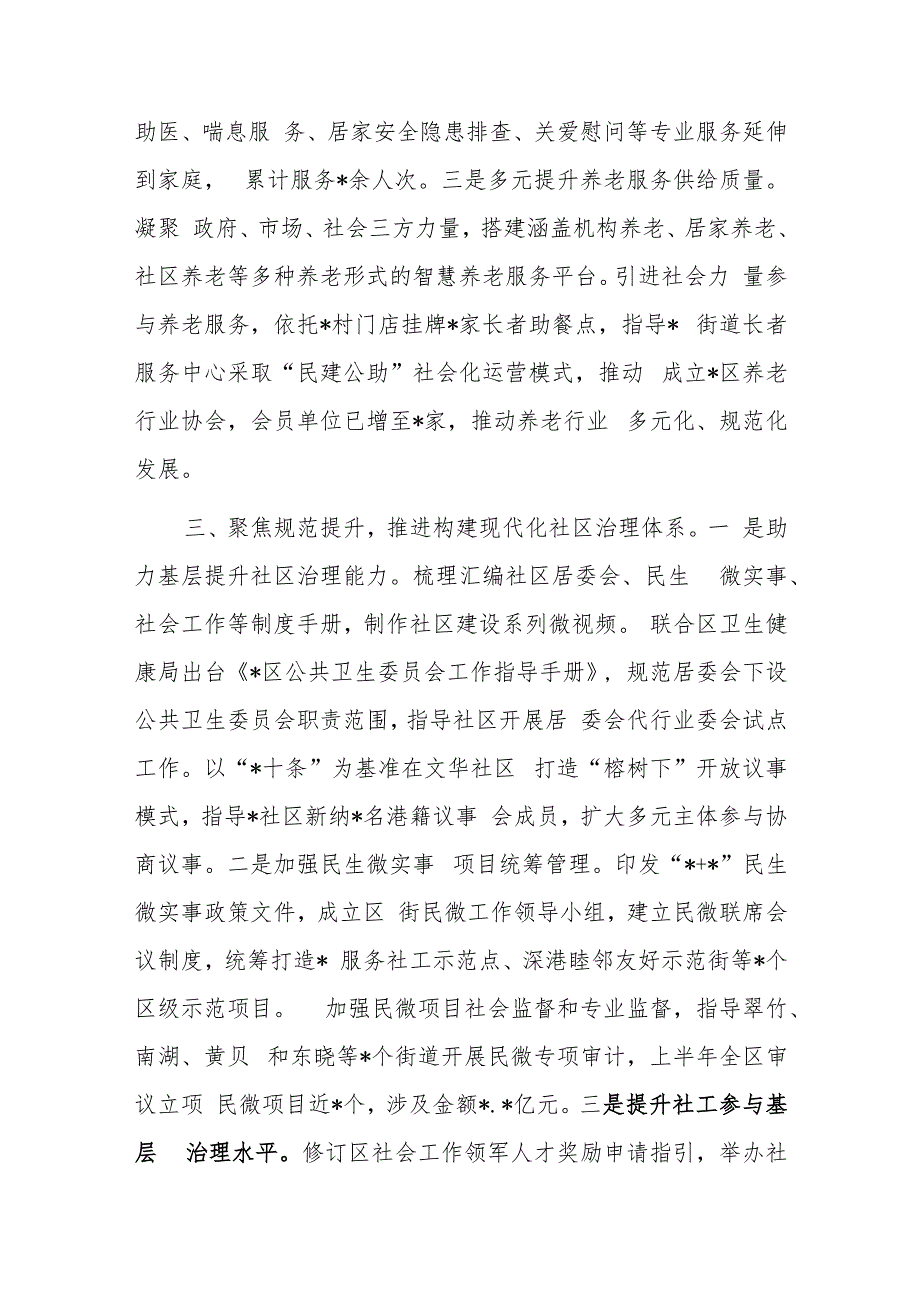 助医、喘息服 务、居家安全隐患排查、关爱慰问等专业服务延伸
到家庭， 累计服务*余人次。三是多元提升养老服务供给质量。
凝聚 政府、市场、社会三方力量，搭建涵盖机构养老、居家养老、
社区养老等多种养老形式的智慧养老服务平台。引进社会力 量参
与养老服务，依托*村门店挂牌*家长者助餐点，指导* 街道长者
服务中心采取“民建公助”社会化运营模式，推动 成立*区养老
行业协会，会员单位已增至*家，推动养老行业 多元化、规范化
发展。
三、聚焦规范提升，推进构建现代化社区治理体系。一 是助
力基层提升社区治理能力。梳理汇编社区居委会、民生 微实事、
社会工作等制度手册，制作社区建设系列微视频。 联合区卫生健
康局出台《*区公共卫生委员会工作指导手册》, 规范居委会下设
公共卫生委员会职责范围，指导社区开展居 委会代行业委会试点
工作。以“*十条”为基准在文华社区 打造“榕树下”开放议事
模式，指导*社区新纳*名港籍议事 会成员，扩大多元主体参与协
商议事。二是加强民生微实事 项目统筹管理。印发“*+*”民生
微实事政策文件，成立区 街民微工作领导小组，建立民微联席会
议制度，统筹打造* 服务社工示范点、深港睦邻友好示范街等*个
区级示范项目。 加强民微项目社会监督和专业监督，指导翠竹、
南湖、黄贝 和东晓等*个街道开展民微专项审计，上半年全区审
议立项 民微项目近*个，涉及金额*.*亿元。三是提升社工参与基
层 治理水平。修订区社会工作领军人才奖励申请指引，举办社